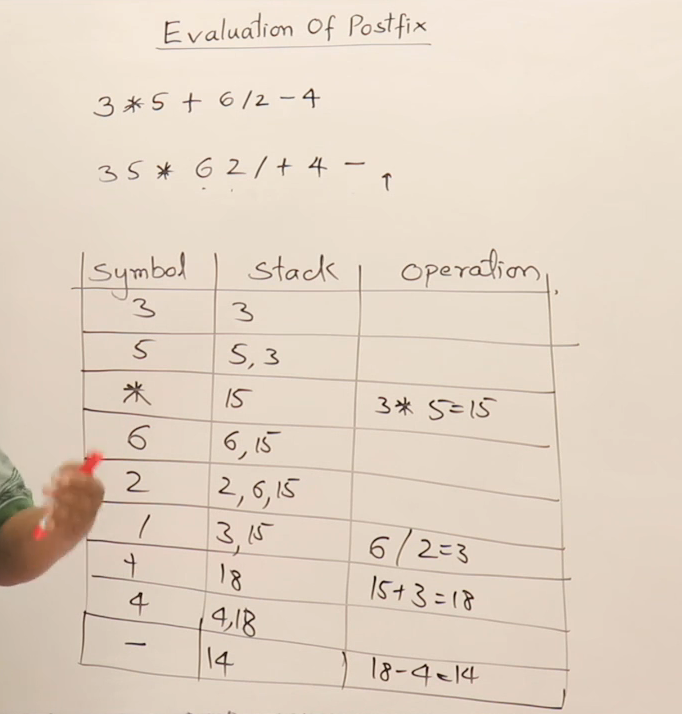 Evaluation Of Postfix
3 * 5 + 6 / 2 - 4
3 5 * 6 2 / + 4 - ↑
Symbol Stack Operation
3 3
5 5, 3
* 15 3 * 5 = 15
6 6, 15
2 2, 6, 15
/ 3, 15 6 / 2 = 3
+ 18 15 + 3 = 18
4 4, 18
- 14 18 - 4 = 14